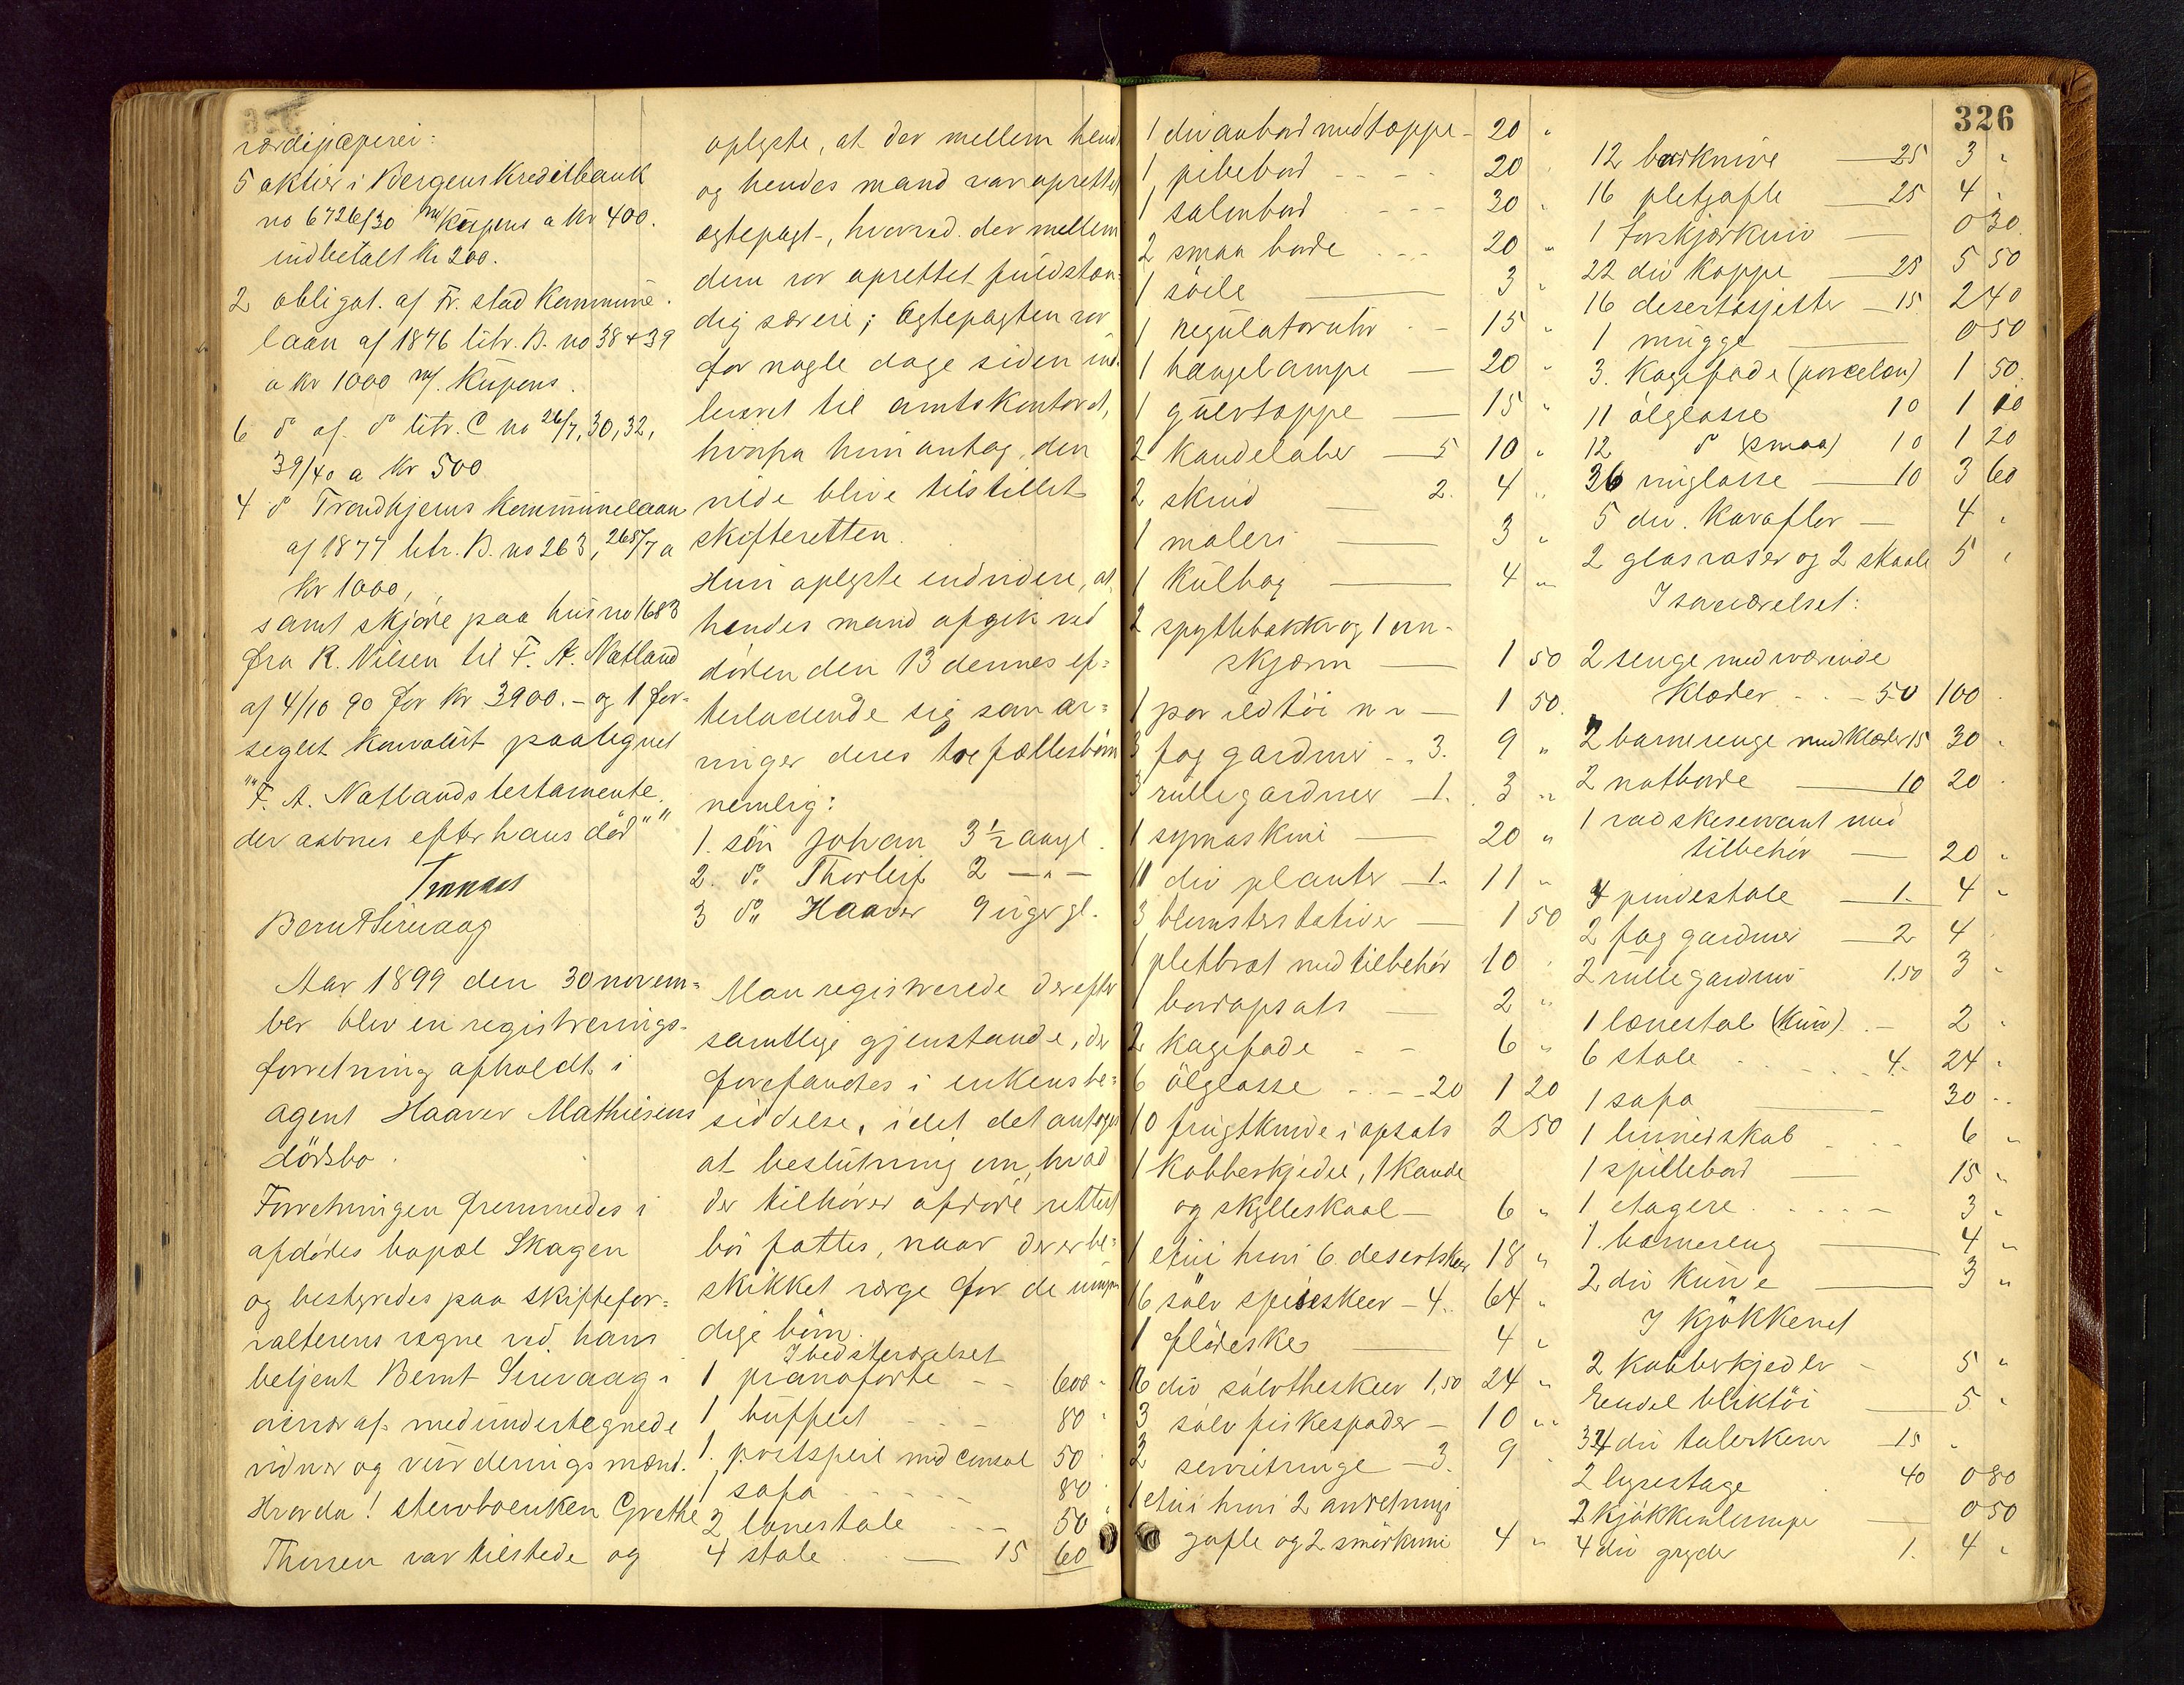 værdipapirer:
5 aktier i Bergens Kreditbank
no 6726/30 m/Kupons a kr 400.
indbetalt kr 200.
2 obligat. af Fr. stad Kommune
laan af 1876 litr. B. no 38 + 39
a kr 1000 m/. Kupons.
6 do af. do litr. C no 26/7, 30, 32,
39/40 a kr 500
4 do Trondhjems kommunelaan
af 1877 litr. B. no 263, 265/7 a
kr 1000,
samt skjøde paa hus no 1683
fra R. Nilsen til F. A. Natland
af 4/10 90 for kr 3900.- og 1 for-
seglet konvolut paategnet
"F. A. Natlands testamente
der aabnes efter hans død"
Bernt Sirevaag
Aar 1899 den 30 novem-
ber blev en registrerings-
forretning afholdt i
agent Haaver Mathiesens
dødsbo.
Forretningen fremmedes i
afdødes bopæl Skagen
og bestyredes paa skiftefor-
valterens vegne ved hans
betjent Bernt Sirevaag i
nærvær af medundertegnede
vidner og vurderingsmænd.
Hvorda! stervboenken Grethe
Thorsen var tilstede og
oplyste, at der mellem hende
og hendes mand var oprettet
ægtepagt, hvorved der mellem
dem var oprettet fuldstæn-
dig særeie; Ægtepagten var
for nogle dage siden ind-
leveret til amtskontoret,
hvorfra hun antog, den
vilde blive tilstillet
skifteretten.
Hun oplyste endvidere, at
hendes mand afgik ved
døden den 13 dennes ef-
terladende sig som ar-
vinger deres tre fællesbørn
nemlig:
1. søn Johan 3 1/2 aargl.
2. do. Thorleif 2 -"-
3 do. Haaver 9 uger gl.
Man registrerede derefter
samtlige gjenstande, der
forefandtes i enkens be-
siddelse, idet det antoges
at beslutning om, hvad
der tilhører afdøde rettest
bør fattes, naar der er be-
skikket værge for de umyn-
dige børn.
I bedsteværelset
1 pianoforte - - 600 "
1 buffet - - - 80 "
1. portspeil med consol 50 "
1 sofa - - - 80 "
2 lænestole - - - 50 "
4 stole — 15 60
326
1 divanbord med tæppe - 20 "
1 pibebord - - - - 20 "
1 salonbord - - - 30 "
2 smaa borde - - - 20 "
1 søile — 3 "
1 regulatoruhr - - 15 "
1 hængelampe — 20 "
1 gulvtæppe — 15 "
2 kandelaber — 5 10 "
2 skind — 2. 4 "
1 maleri — 3 "
1 kulbox — 4 "
2 spyttebakker og 1 ovn-
skjærm — 1 50
1 par ildtøi — 1 50.
3 fag gardiner - 3. 9 "
3 rullegardiner - 1. 3 "
1 symaskine — 20 "
11 div planter - 1. 11 "
3 blomsterstativer — 1 50
1 pletbræt med tilbehør 10 "
1 bordopsats — 2 "
2 kagefade - - 6 "
6 ølglasse - - 20 1 20
10 frugtknive i opsats 2 50
1 kobberkjedel, 1 kande
og skylleskaal - 6 "
1 etui hvori 6 desertskeer 18 "
16 sølv spiseskeer - 4. 64 "
1 flødeske — 4 "
16 div sølvtheskeer 1,50 24 "
3 sølv fiskespader - 10 "
3 servietringe - 3. 9 "
1 etui hvori 2 anretnings
gafle og 2 smørkniv 4 "
12 bordknive — 25 3 "
16 pletgafle — 25 4 "
1 forskjærkniv — 0 30.
22 div koppe — 25 5 50
16 desertasjetter - 15 2 40
1 mugge — 0 50
3. kagefade (porcelæn) 1 50.
11 ølglasse 10 1 10
12 do (smaa) 10 1 20
36 vinglasse — 10 3 60
5 div. karafler — 4 "
2 glasvaser og 2 skaale 5 "
I soveværelset:
2 senge med iværende
klæder - - - 50 100 "
2 barnesenge med klæder 15 30 "
2 natborde — 10 20 "
1 vaskeservant med
tilbehør — 20 "
4 pindestole — 1. 4 "
2 fag gardiner — 2 4 "
2 rullegardiner 1.50 3 "
1 lænestol (kurv) - 2 "
6 stole - - - 4. 24 "
1 sofa — 30 "
1 linnedskab - - - 6 "
1 spillebord — 15 "
1 etagere - - - - 3 "
1. barneseng — 4 "
2 div kurve — 3 "
I Kjøkkenet
2 kobberkjedler - 5 "
Endel bliktøi — 5 "
34 div tallerkener — 15 "
2 lysestage 40 0 80
2 kjøkkenlampe — 0 50
4 div gryder 1. 4 "